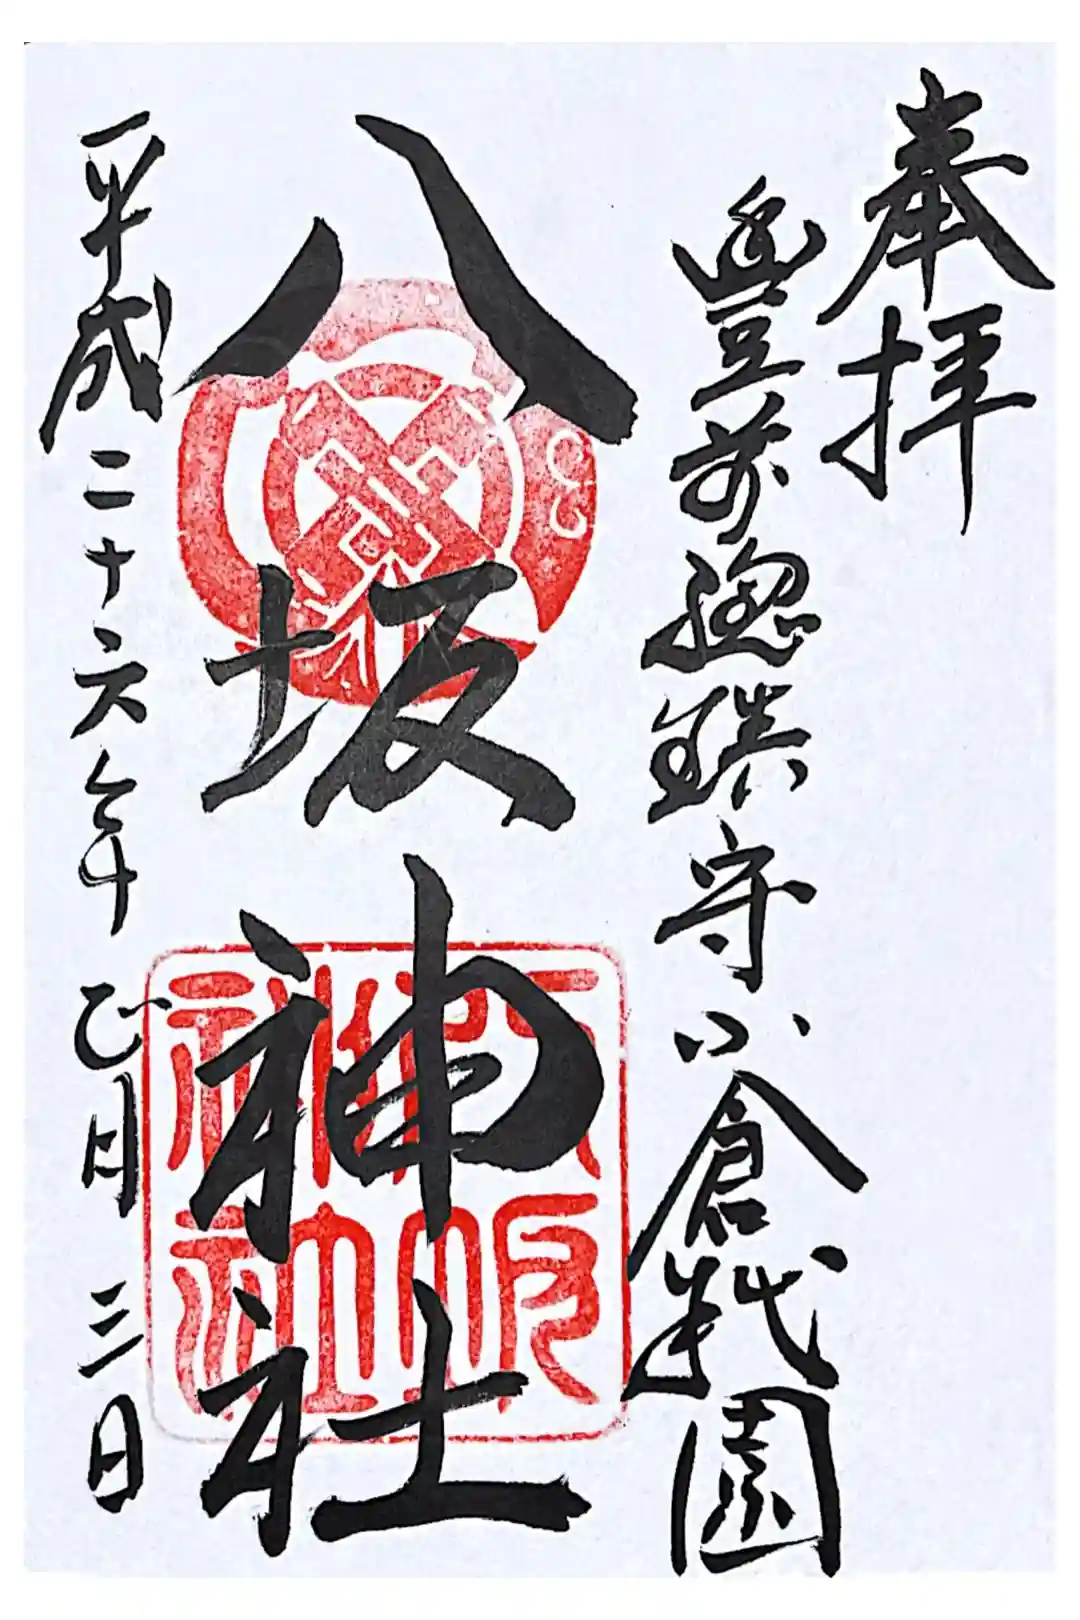 奉拝
豐前總鎮守小倉祇園
八坂神社
平成二十六年正月三日
八坂神社